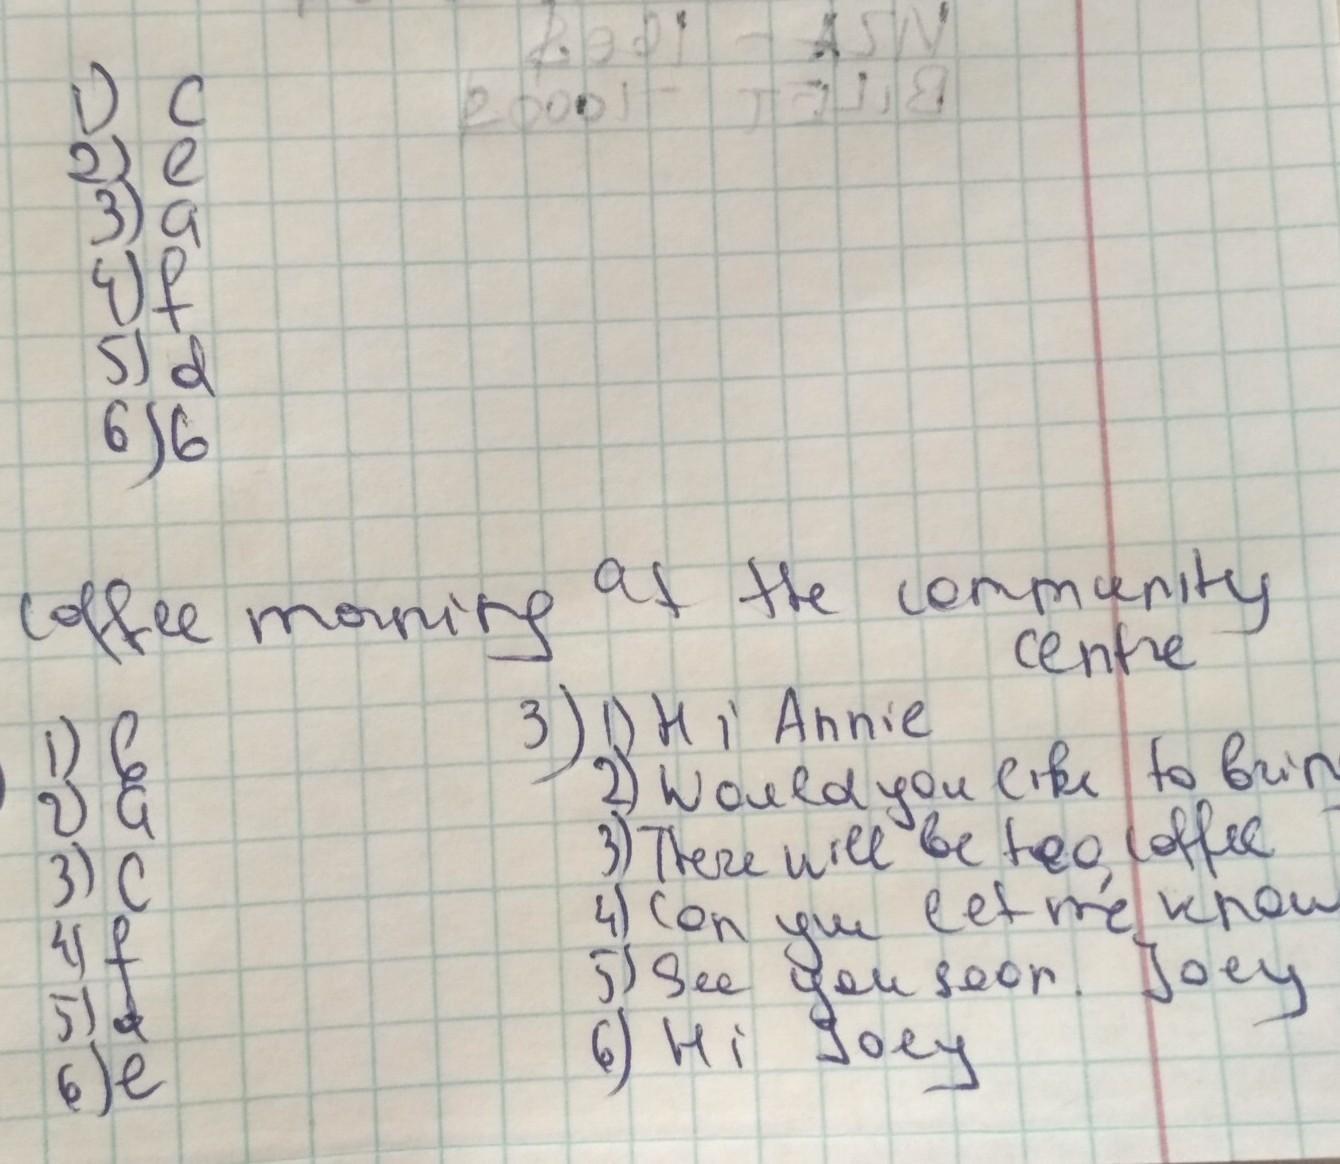 1) c
2) e
3) a
4) f
5) d
6) b
coffee morning at the community
centre
1) b
2) a
3) c
4) f
5) d
6) e
3) 1) Hi Annie
2) Would you like to brin
3) There will be tea, coffee
4) Can you let me know
5) See you soon. Joey
6) Hi Joey